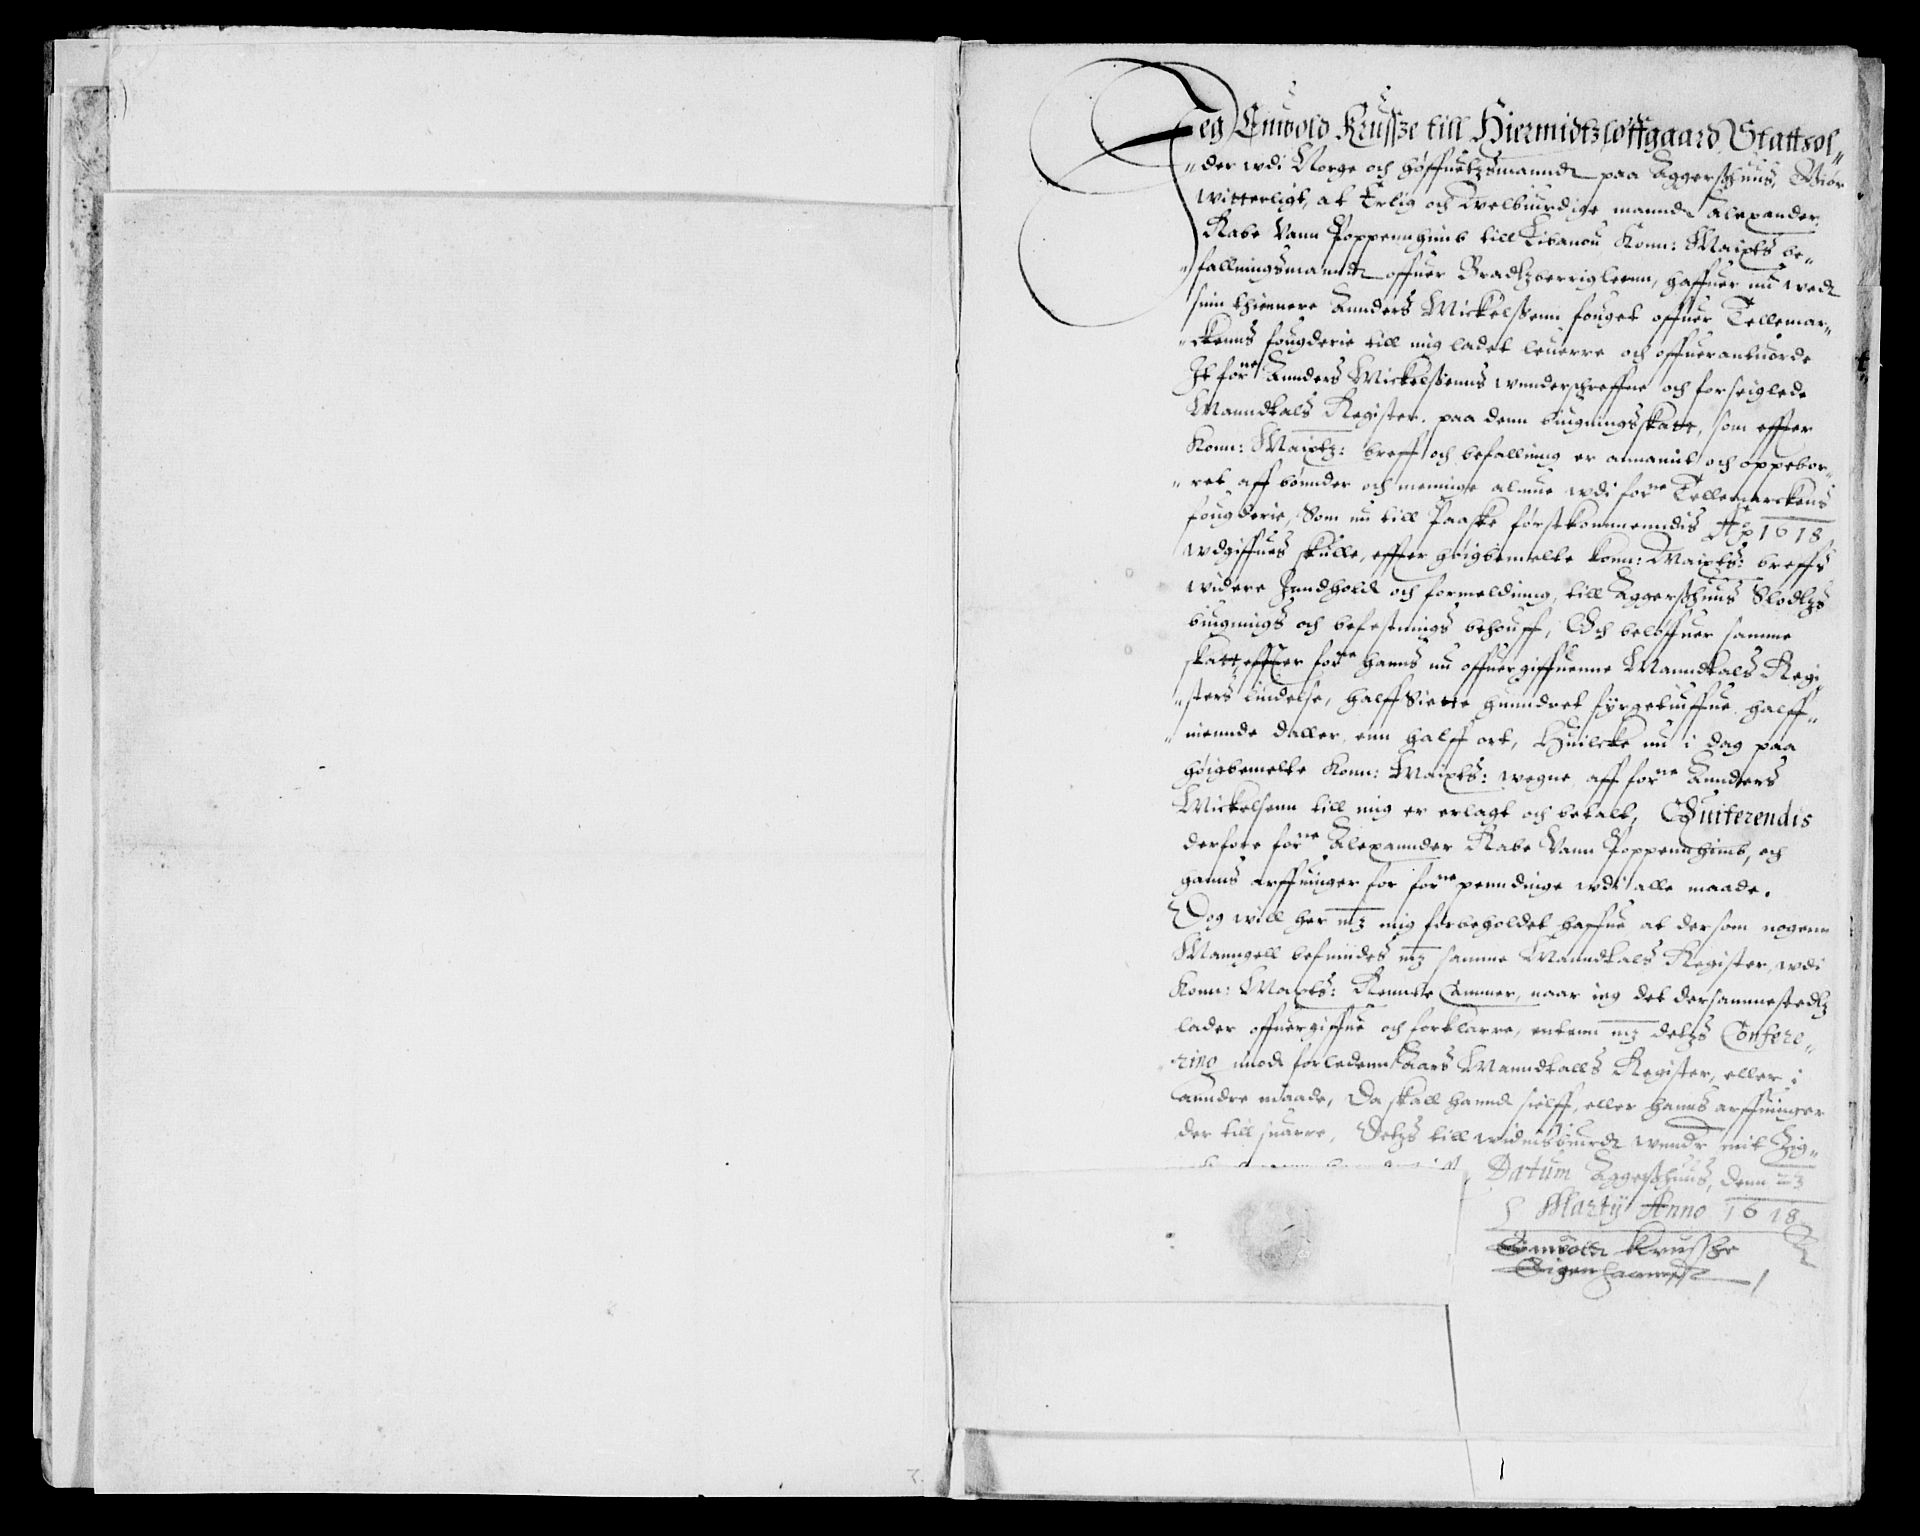 Jeg Enuold Krussze till Hiermidtzløffgaard, Stattsol„
„der wdi Norge och høffuetzmannd paa Aggerszhuus, Giør
witterligt, at Erlig och welbiurdige mannd Alexander
Rabe Vann Poppennhimb till Libanou Konn: Maiytts be„
„fallningsmannd offuer Bradtzberriglenn, haffuer nu wed
sinn thiennere Annders Mickelszenn fouget offuer Tellemar„
„ckenns fougderie till mig ladet leuerre och offuerantuorde
It forne Annders Mickelszenns wnnderschreffne och forseiglede
Manndtals Register. paa denn biugningsskatt, som effter
Konn: Maiytz: breff och befallning er annamit och oppebor„
„ret aff bønnder och mennige almue wdi forne Tellemarckens
fougderie, Som nu till Paaske førstkommenndis Ao 1618
wdgiffues skulle, effter høigbemelte konn: Maiytts: breffs
widere Inndhold och formelding, till Aggerszhuus Slodtzs
biugnings och befestnings behouff, Och beløffuer samme
skatt effter forne hanns nu offuergiffuenne Manndtals Regi„
„sters liudelse, halff Siette hunndret fyrgetuiffue halff„
„niennde daller, enn halff ort, Huilcke nu i dag paa
høigbemelte Konn: Maiytts: wegne aff forne Annders
Mickelsenn till mig er erlagt och betalt, Quiterendis
derfore forne Alexannder Rabe Vann Poppennhimb, och
hanns arffuinger for forne penndinge wdi alle maade.
Dog will her mz mig forbeholdet haffue at dersom nogenn
Manngell befinndes mz samme Manndtals Register, wdi
Konn: Maytts: Rennte Cammer, naar ieg det dersammestedtz
lader offuergiffue och forklarre, entenn mz detzs Confere„
„ring imod forledenn Aars Manndtalls Register, eller i
anndre maade, Da skall hannd sielff, eller hanns arffuinger
der till suarre, Detzs till widnisbiurd wnnder mit Zig„
Datum Aggerszhuus, denn 23
Martij Anno 1618
Enuold Krussze
Eigen haanndt
1